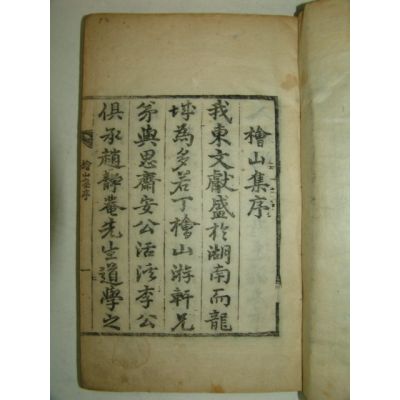 檜山集序
我東文獻盛於湖南而龍
城為多若丁檜山游軒兄
弟與思齋安公活溪李公
俱承趙靜菴先生道學之
檜山集序 一